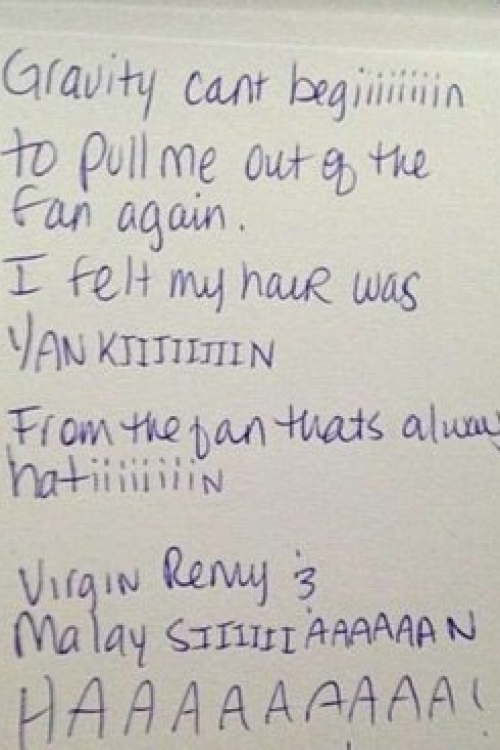 Gravity cant begiiiiiiiin
to pull me out of the
fan again.
I felt my hair was
YANKIIIIIIIIN
From the fan thats alway
hatiiiiiiiiiN
Virgin Remy &
Malay SIIIIIIAAAAAAN
HAAAAAAAAA!